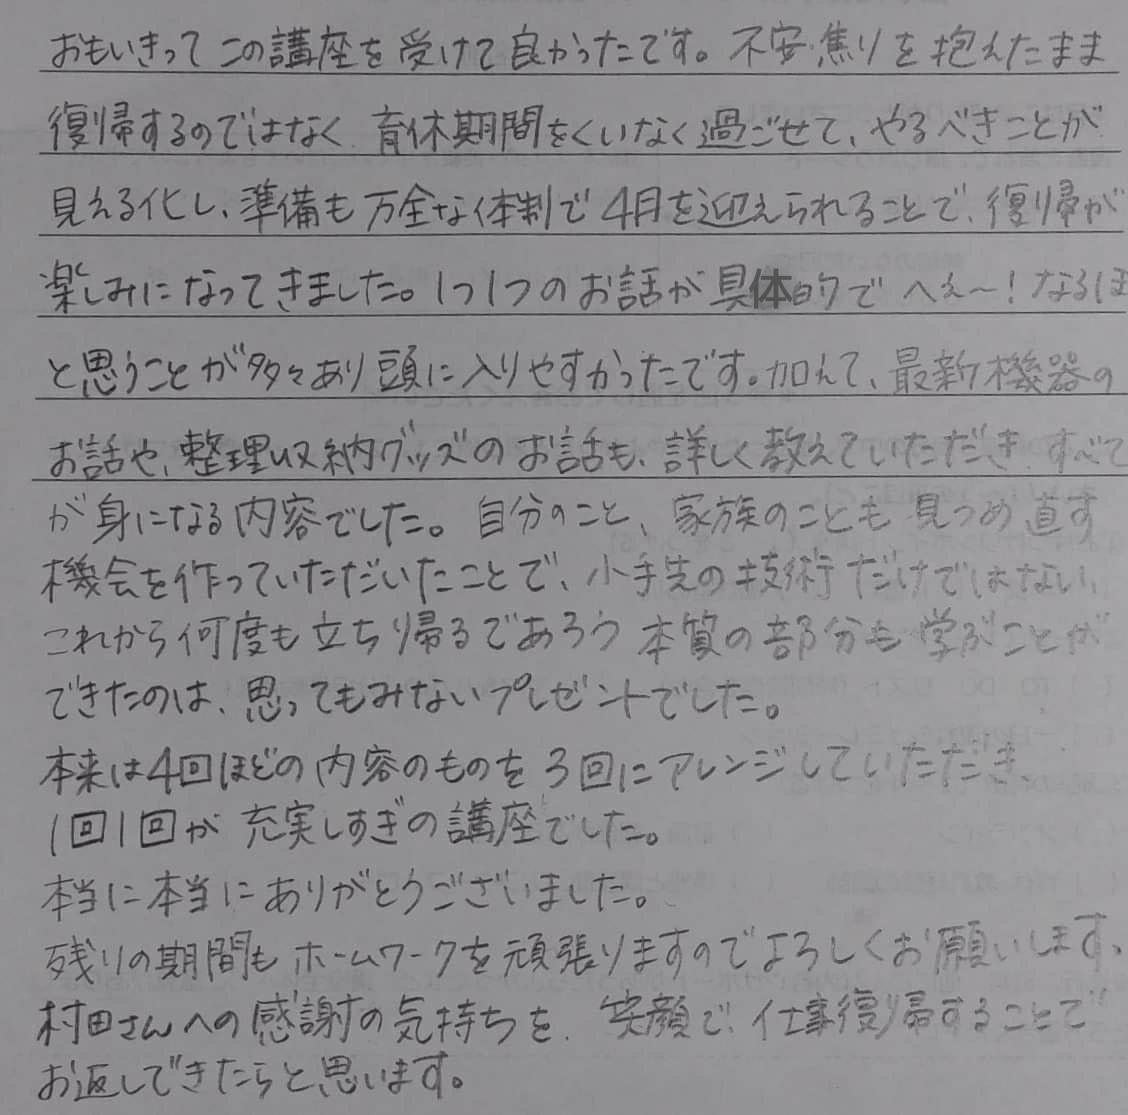 おもいきってこの講座を受けて良かったです。不安・焦りを抱えたまま
復帰するのではなく、育休期間をくいなく過ごせて、やるべきことが
見える化し、準備も万全な体制で4月を迎えられることで、復帰が
楽しみになってきました。1つ1つのお話が具体的でへぇ〜!なるほ
と思うことが多々あり頭に入りやすかったです。加えて、最新機器の
お話や、整理収納グッズのお話も、詳しく教えていただき、すべて
が身になる内容でした。自分のこと、家族のことも見つめ直す
機会を作っていただいたことで、小手先の技術だけではない、
これから何度も立ち帰るであろう本質の部分も学ぶことが
できたのは、思ってもみないプレゼントでした。
本来は4回ほどの内容のものを3回にアレンジしていただき
1回1回が充実しすぎの講座でした。
本当に本当にありがとうございました。
残りの期間もホームワークを頑張りますのでよろしくお願いします。
村田さんへの感謝の気持ちを、笑顔で、仕事復帰することで
お返しできたらと思います。